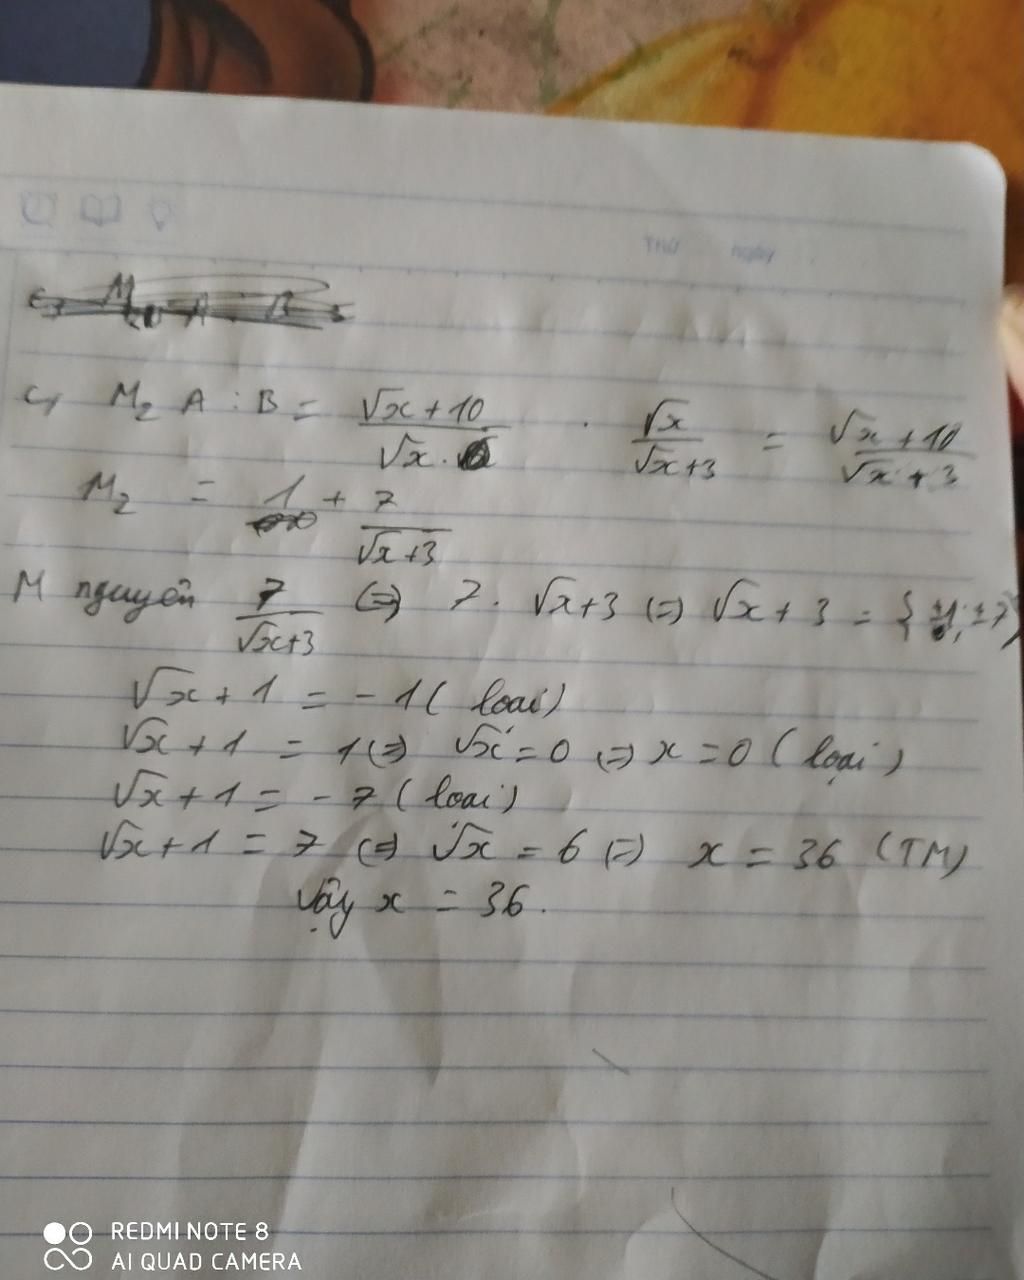 Thứ Ngày
c, M = A : B = √x + 10 / √x . √x / √x+3 = √x + 10 / √x + 3
M = 1 + 7 / √x+3
M nguyên 7 / √x+3 (=) 7 . √x+3 (=) √x + 3 = { ±1; ±7}
√x + 1 = - 1 ( loại)
√x + 1 = 1 (=) √x = 0 (=) x = 0 ( loại )
√x + 1 = - 7 ( loại )
√x + 1 = 7 (=) √x = 6 (=) x = 36 (TM)
Vậy x = 36.
REDMI NOTE 8
AI QUAD CAMERA